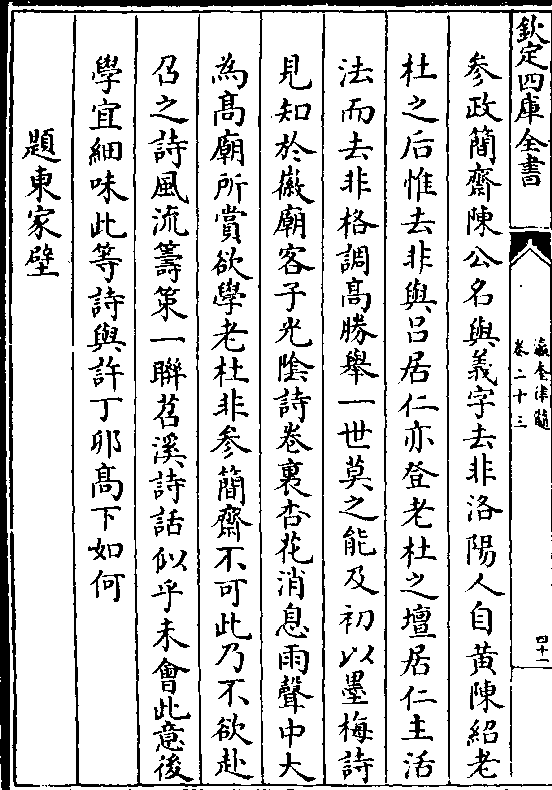 欽定四庫全書
瀛奎律髓
卷二十三
四十一
參政簡齋陳公名與義字去非洛陽人自黃陳紹老
杜之后惟去非與呂居仁亦登老杜之壇居仁主活
法而去非格調髙勝舉一世莫之能及初以墨梅詩
見知於徽廟客子光隂詩卷裏杏花消息雨聲中大
為髙廟所賞欲學老杜非參簡齋不可此乃不欲赴
召之詩風流籌策一聯苕溪詩話似乎未會此意後
學宜細味此等詩與許丁夘髙下如何
題東家壁